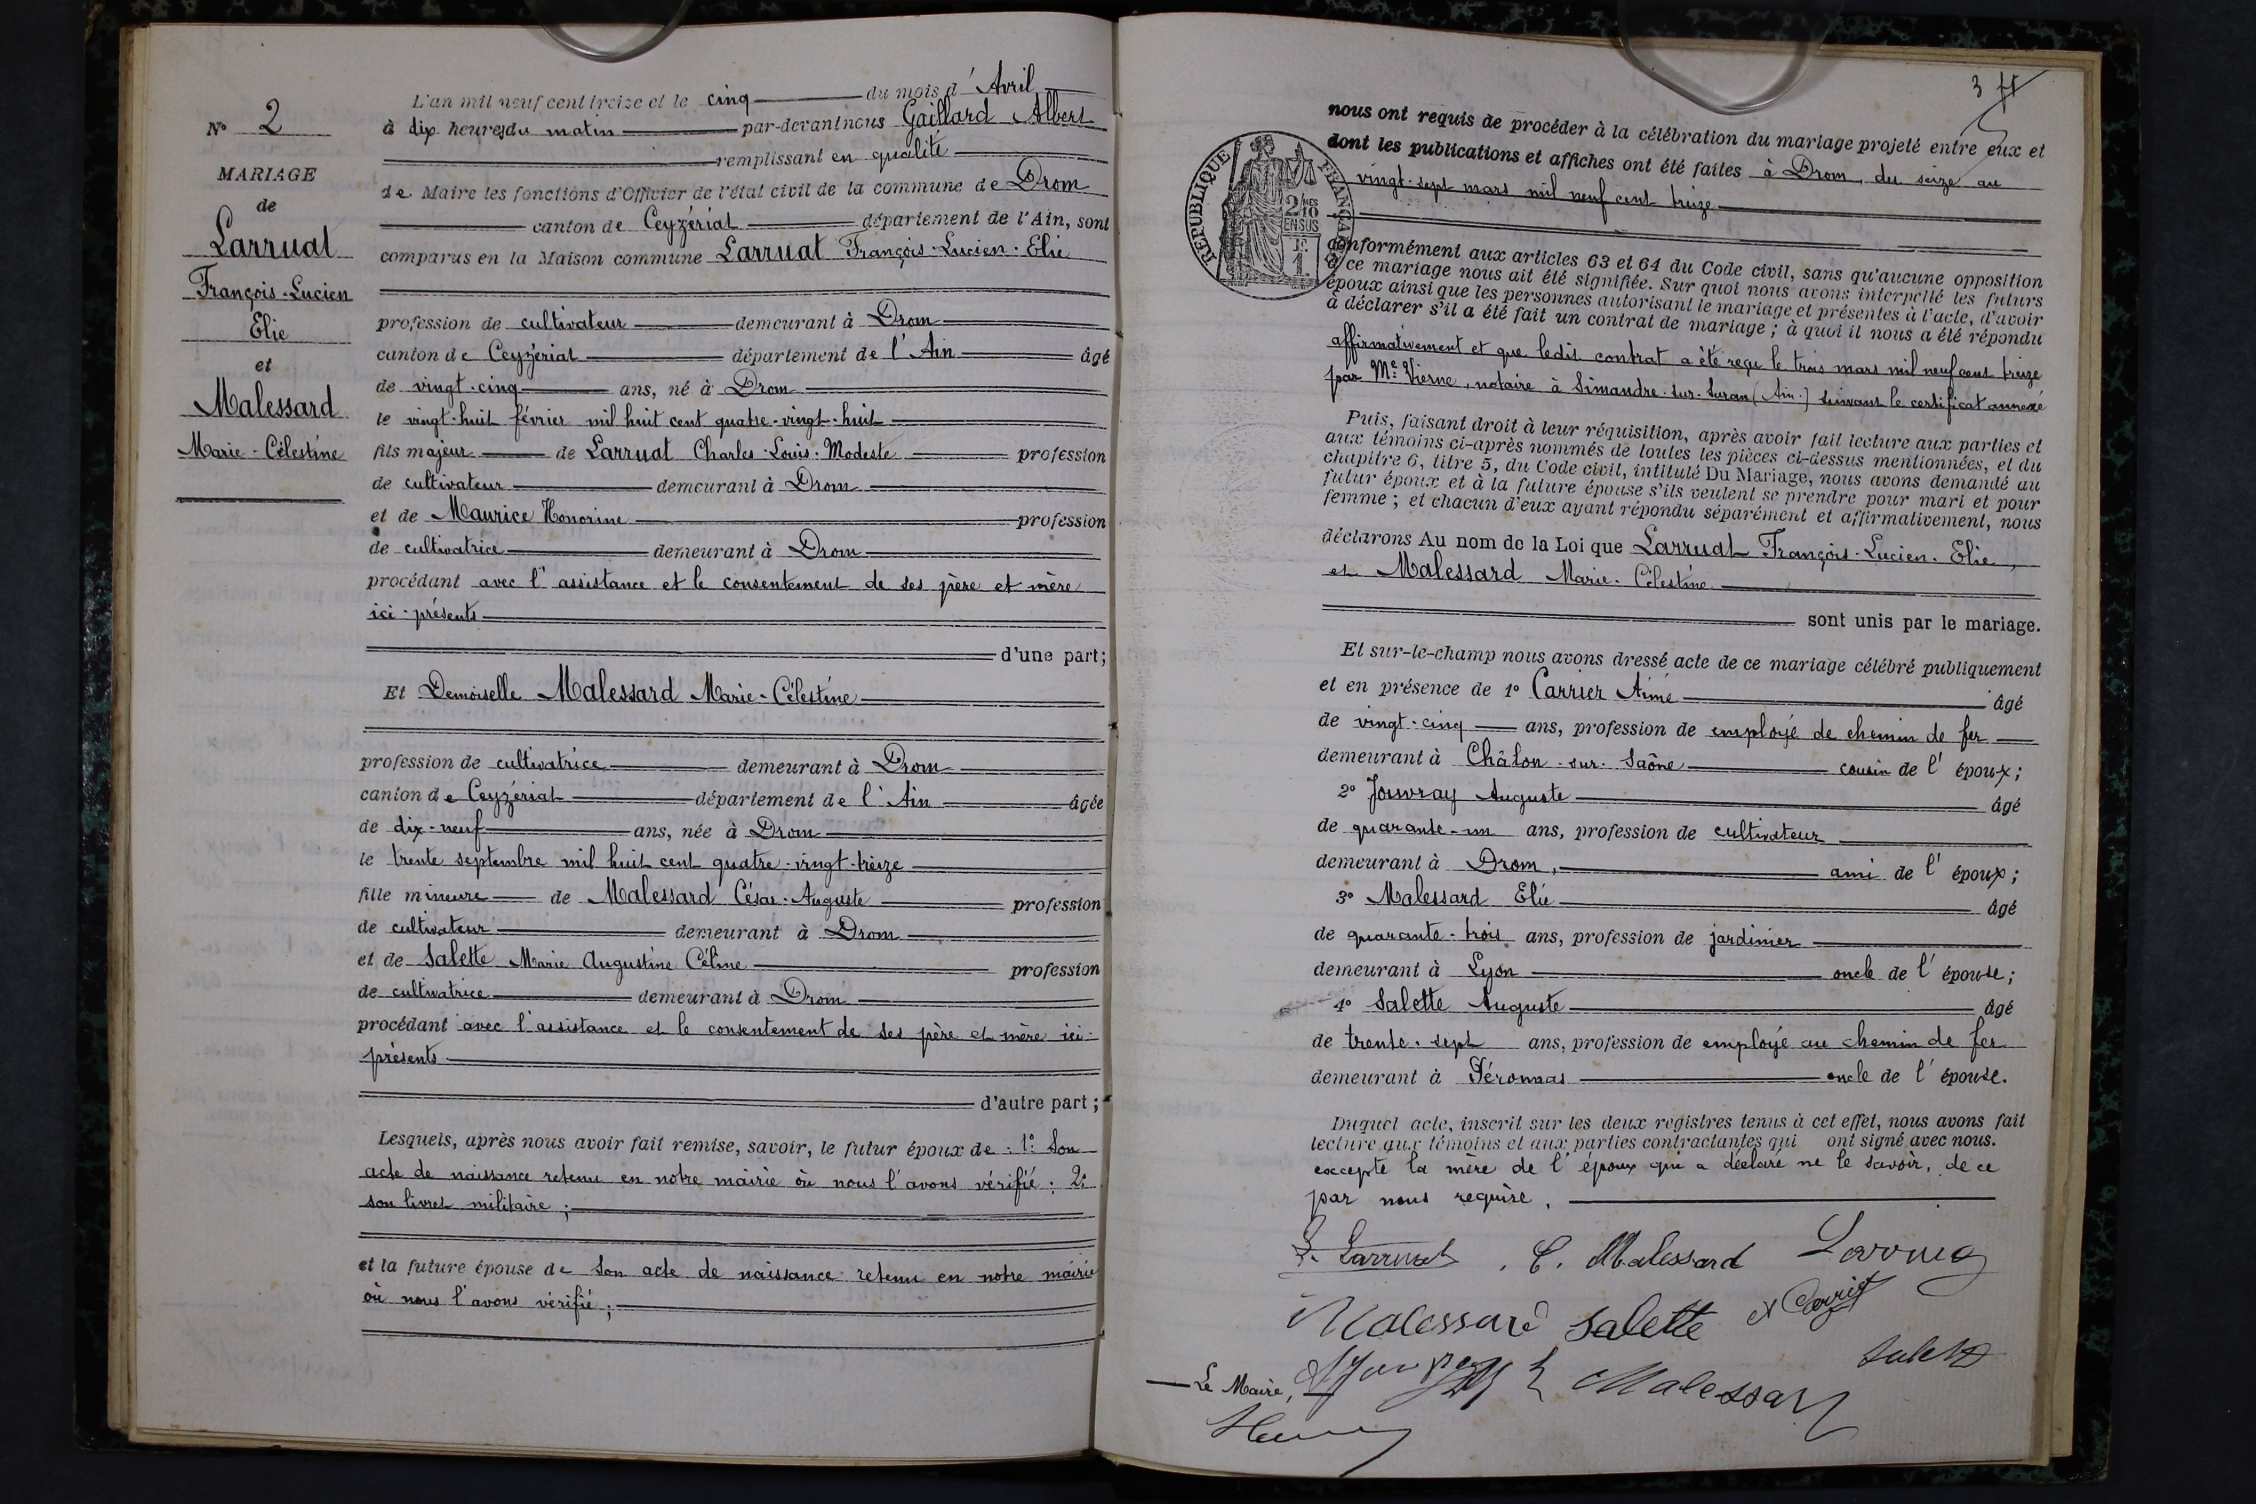 N° 2
MARIAGE
de
Larruat
François-Lucien
Elie
et
Malessard
Marie-Célestine
L'an mil neuf cent treize et le cinq du mois d'Avril
à dix heures du matin par-devant nous Gaillard Albert
remplissant en qualité
de Maire les fonctions d'Officier de l'état civil de la commune de Drom
canton de Ceyzériat département de l'Ain, sont
comparus en la Maison commune Larruat François-Lucien-Elie
profession de cultivateur demeurant à Drom
canton de Ceyzériat département de l'Ain âgé
de vingt-cinq ans, né à Drom
le vingt-huit février mil huit cent quatre-vingt-huit
fils majeur de Larruat Charles-Louis-Modeste profession
de cultivateur demeurant à Drom
et de Maurice Honorine profession
de cultivatrice demeurant à Drom
procédant avec l'assistance et le consentement de ses père et mère
ici-présents
d'une part;
Et Demoiselle Malessard Marie-Célestine
profession de cultivatrice demeurant à Drom
canton de Ceyzériat département de l'Ain âgée
de dix-neuf ans, née à Drom
le trente septembre mil huit cent quatre-vingt-treize
fille mineure de Malessard César-Auguste profession
de cultivateur demeurant à Drom
et de Salette Marie Augustine Céline profession
de cultivatrice demeurant à Drom
procédant avec l'assistance et le consentement de ses père et mère ici-
présents
d'autre part;
Lesquels, après nous avoir fait remise, savoir, le futur époux de : 1° Son
acte de naissance retenu en notre mairie où nous l'avons vérifié; 2°
son livret militaire;
et la future épouse de Son acte de naissance retenu en notre mairie
où nous l'avons vérifié;
3
nous ont requis de procéder à la célébration du mariage projeté entre eux et
dont les publications et affiches ont été faites à Drom, du seize au
vingt-sept mars mil neuf cent treize
RÉPUBLIQUE FRANÇAISE
2/10 MES
EN SUS
1F.
conformément aux articles 63 et 64 du Code civil, sans qu'aucune opposition
à ce mariage nous ait été signifiée. Sur quoi nous avons interpellé les futurs
époux ainsi que les personnes autorisant le mariage et présentes à l'acte, d'avoir
à déclarer s'il a été fait un contrat de mariage; à quoi il nous a été répondu
affirmativement et que ledit contrat a été reçu le trois mars mil neuf cent treize
par Me Vierne, notaire à Simandre-sur-Suran (Ain) suivant le certificat annexé
Puis, faisant droit à leur réquisition, après avoir fait lecture aux parties et
aux témoins ci-après nommés de toutes les pièces ci-dessus mentionnées, et du
chapitre 6, titre 5, du Code civil, intitulé Du Mariage, nous avons demandé au
futur époux et à la future épouse s'ils veulent se prendre pour mari et pour
femme; et chacun d'eux ayant répondu séparément et affirmativement, nous
déclarons Au nom de la Loi que Larruat François-Lucien-Elie,
et Malessard Marie-Célestine
sont unis par le mariage.
Et sur-le-champ nous avons dressé acte de ce mariage célébré publiquement
et en présence de 1° Carrier Aimé âgé
de vingt-cinq ans, profession de employé de chemin de fer
demeurant à Châlon-sur-Saône cousin de l'époux;
2° Jouvray Auguste âgé
de quarante-un ans, profession de cultivateur
demeurant à Drom, ami de l'époux;
3° Malessard Elie âgé
de quarante-trois ans, profession de jardinier
demeurant à Lyon oncle de l'épouse;
4° Salette Auguste âgé
de trente-sept ans, profession de employé au chemin de fer
demeurant à Péronnas oncle de l'épouse.
Duquel acte, inscrit sur les deux registres tenus à cet effet, nous avons fait
lecture aux témoins et aux parties contractantes qui ont signé avec nous.
excepté la mère de l'époux qui a déclaré ne le savoir, de ce
par nous requise.
L. Larruat C. Malessard
Malessard Salette
Salette
Malessard
Le Maire,